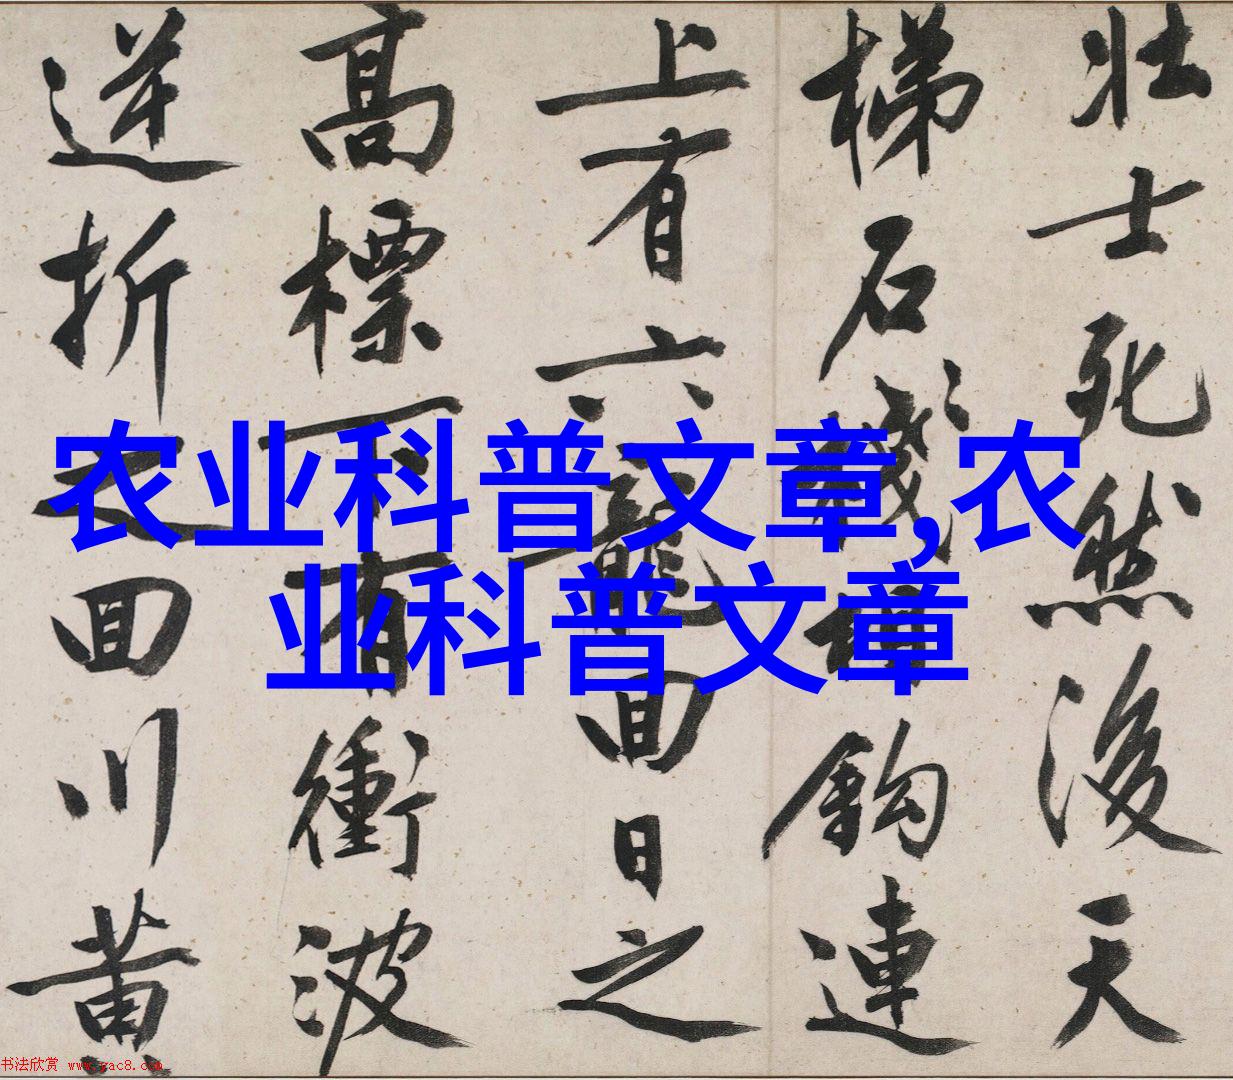 农业科普文章,农
业科普文章
壮士死然後天
梯石棧相鈎連
上有六龍回日之
高標下有衝波
逆折之回川黃
书法欣赏 www.yac8.com